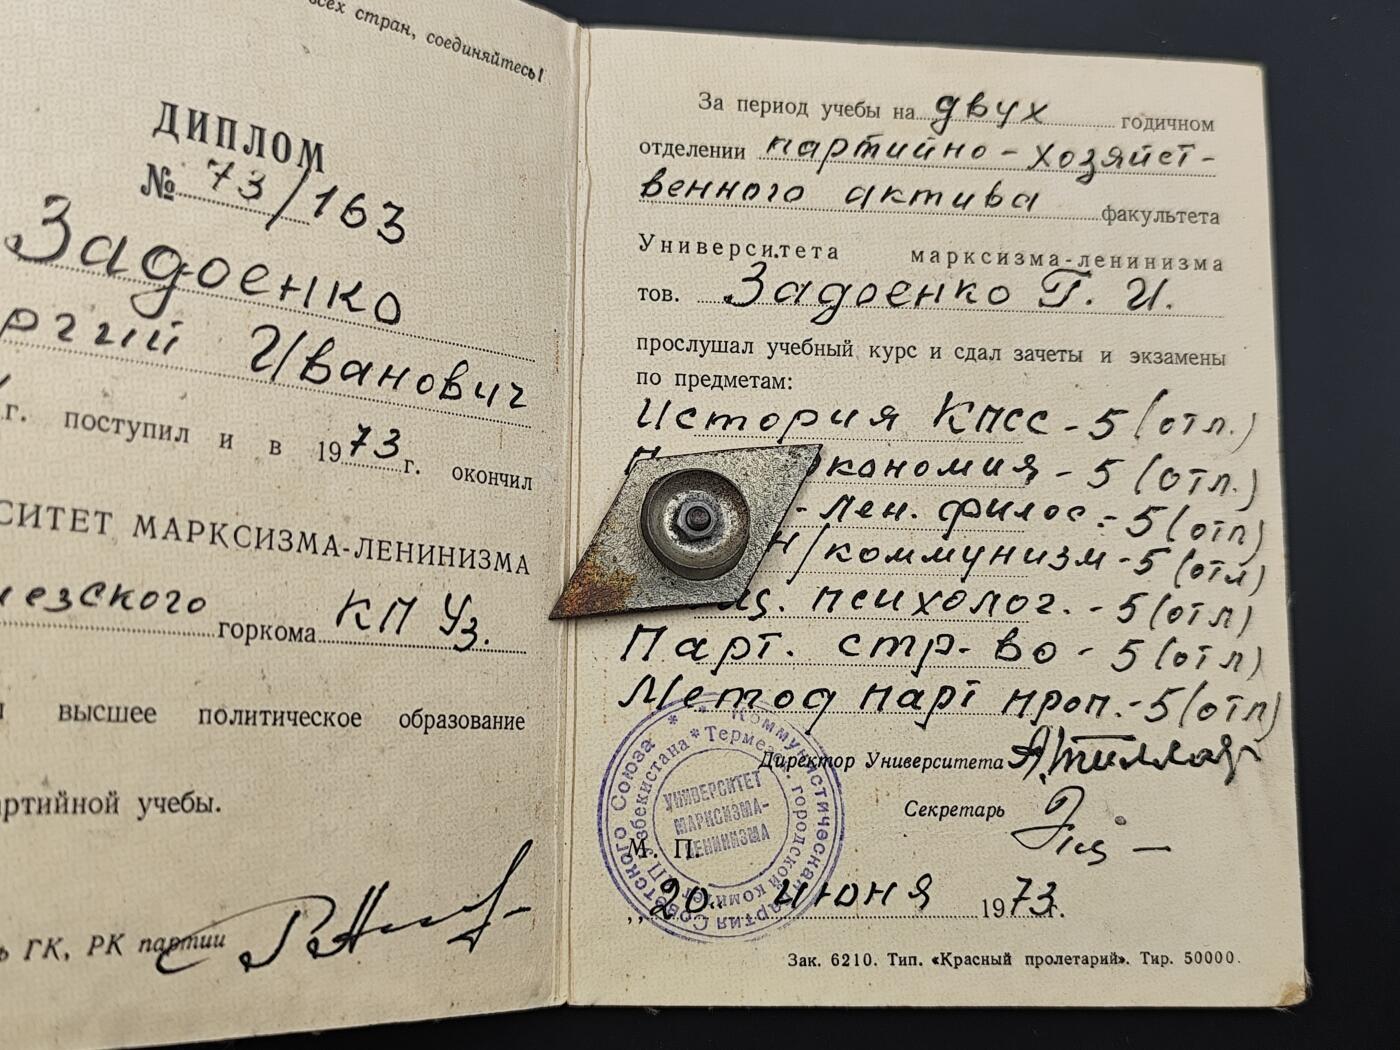 всех стран, соединяйтесь!
ДИПЛОМ
№ 73/163
Задоенко
ргий Иванович
г. поступил и в 1973 г. окончил
СИТЕТ МАРКСИЗМА-ЛЕНИНИЗМА
езского горкома КП Уз.
высшее политическое образование
артийной учебы.
ГК, РК партии
За период учебы на двух годичном
отделении партийно-хозяйст-
венного актива факультета
Университета марксизма-ленинизма
тов. Задоенко Г. И.
прослушал учебный курс и сдал зачеты и экзамены
по предметам:
История КПСС - 5 (отл.)
кономия - 5 (отл.)
-лен. филос. - 5 (отл)
н/коммунизм - 5 (отл)
психолог. - 5 (отл)
Парт. стр-во - 5 (отл)
Метод парт проп. - 5 (отл)
Директор Университета
Секретарь
М. П.
„20" июня 1973 г.
Коммунистическая партия Советского Союза
Термез. городской комитет КП Узбекистана
УНИВЕРСИТЕТ
МАРКСИЗМА-
ЛЕНИНИЗМА
Зак. 6210. Тип. «Красный пролетарий». Тир. 50000.